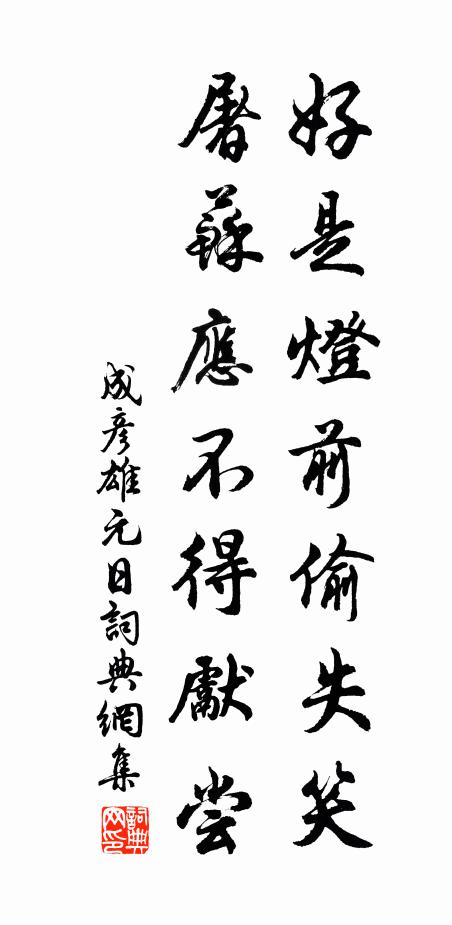 好是燈前偷失笑
屠蘇應不得獻嘗
成彥雄元日詞典網集
詞典网印